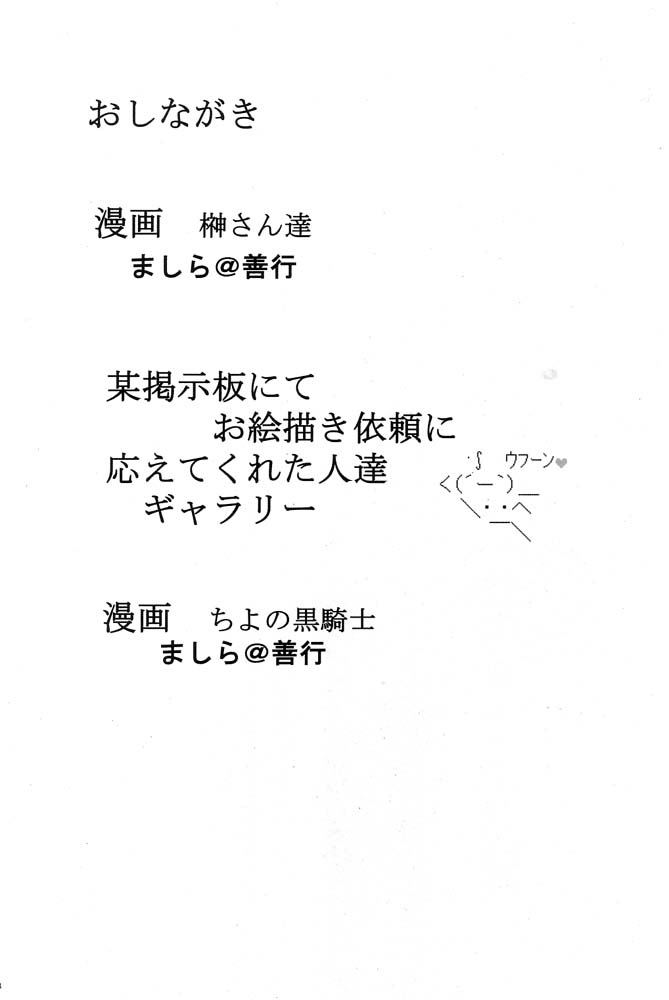 おしながき
漫画　榊さん達
ましら＠善行
某掲示板にて
お絵描き依頼に
応えてくれた人達
ギャラリー
∫　ウフーン♥
く(´ー`)＿
＼・・へ
￣＼
漫画　ちよの黒騎士
ましら＠善行